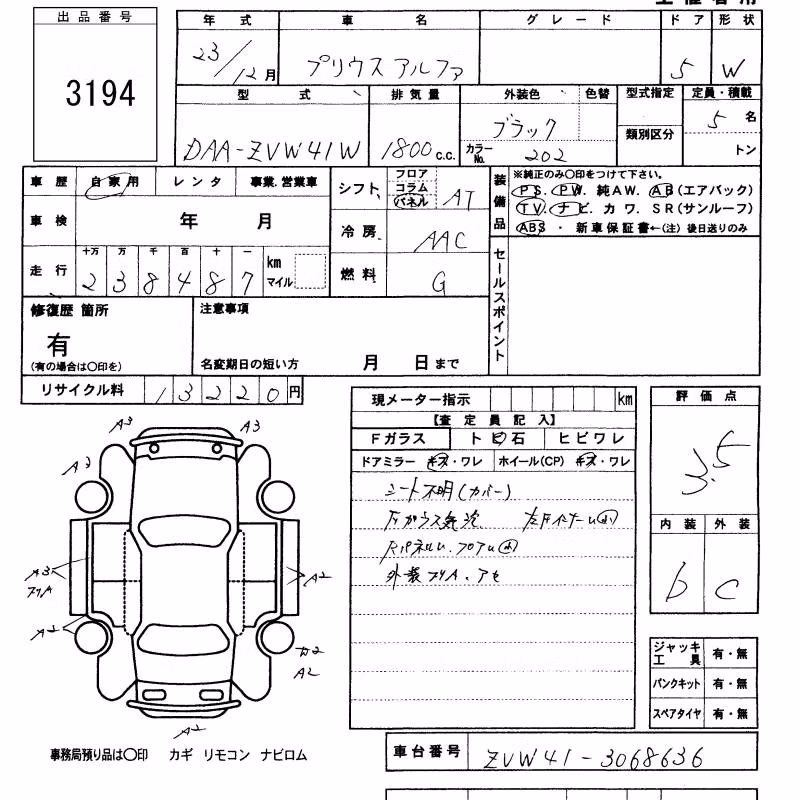 出品番号
3194
年式 車名 グレード ドア 形状
23/12月 プリウスアルファ 5 W
型式 排気量 外装色 色替 型式指定 定員・積載
DAA-ZVW41W 1800c.c. ブラック 類別区分 5名
カラーNo. 202 トン
車歴 自家用 レンタ 事業.営業車
車検 年 月
走行 十万 万 千 百 十 一 km マイル
238487
シフト フロア コラム パネル AT
冷房 AAC
燃料 G
装備品 ※純正のみ〇印をつけて下さい。
PS. PW. 純AW. AB(エアバック)
TV. ナビ. カワ. SR(サンルーフ)
ABS ・ 新車保証書←(注) 後日送りのみ
セールスポイント
修復歴 箇所
有
(有の場合は〇印を)
注意事項
名変期日の短い方 月 日まで
リサイクル料 13220円
現メーター指示 km
【査定員記入】
Fガラス トビ石 ヒビワレ
ドアミラー キズ・ワレ ホイール(CP) キズ・ワレ
シート不明(カバー)
外装
評価点
3.5
内装 外装
b C
A3 A3
A3
A3
A2
A2
A2
A2
ジャッキ工具 有・無
パンクキット 有・無
スペアタイヤ 有・無
事務局預り品は〇印 カギ リモコン ナビロム
車台番号 ZVW41-3068636